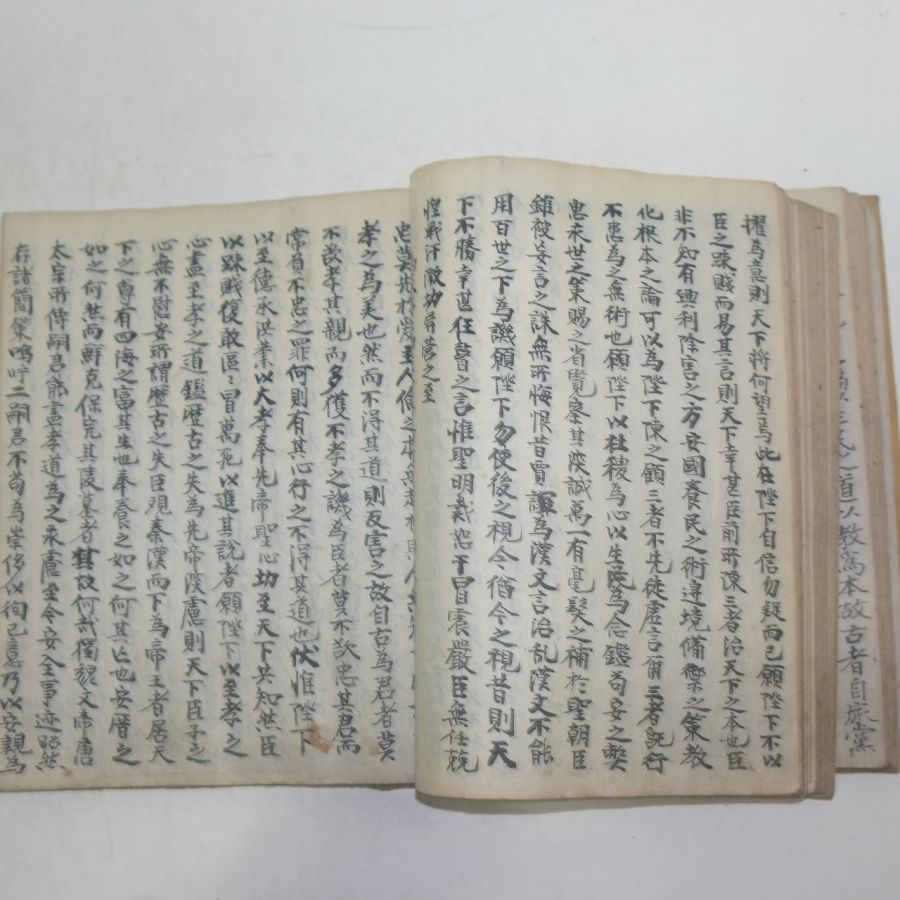 以教為本故古者自家黨
擢為意則天下將何望焉此在陛下自信勿疑而已願陛下不以
臣之疎賤而易其言則天下幸甚臣前所陳三者治天下之本也臣
非不知有興利除害之方安國養民之術邊境備禦之策教
化根本之論可以為陛下陳之顧三者不先徒虛言爾三者既行
不患為之無術也願陛下以社稷為心以生民為念鑑苟安之弊
思永世之策賜之省覽察其深誠萬一有毫髮之補於聖朝臣
雖被妄言之誅無所悔恨昔賈誼為漢文言治亂漢文不能
用百世之下為譏願陛下勿使後之視今猶今之視昔則天
下不勝幸甚狂瞽之言惟聖明裁恕干冒宸嚴臣無任兢
惶戰汗激切屏營之至
孝之為美也然而不得其道則反害之故自古為君者莫
不欲孝其親而多獲不孝之譏為臣者莫不欲忠其君而
常負不忠之罪何則有其心行之不得其道也伏惟陛下
以至德承洪業以大孝奉先帝聖心切至天下共知然臣
以疎賤復敢區區冒萬死以進其說者願陛下以至孝之
心盡至孝之道鑑歷古之失為先帝深慮則天下臣子之
心無不慰安所謂歷古之失臣觀秦漢而下為帝王者居天
下之尊有四海之富其生也奉養之如之何其亡也安厝之
如之何然而鮮克保完其陵墓者其故何哉獨魏文帝唐
太宗所傳嗣君能盡孝道為之永慮至今安全事迹昭然
存諸簡策嗚呼二嗣君不苟為崇侈以徇己意乃以安親為